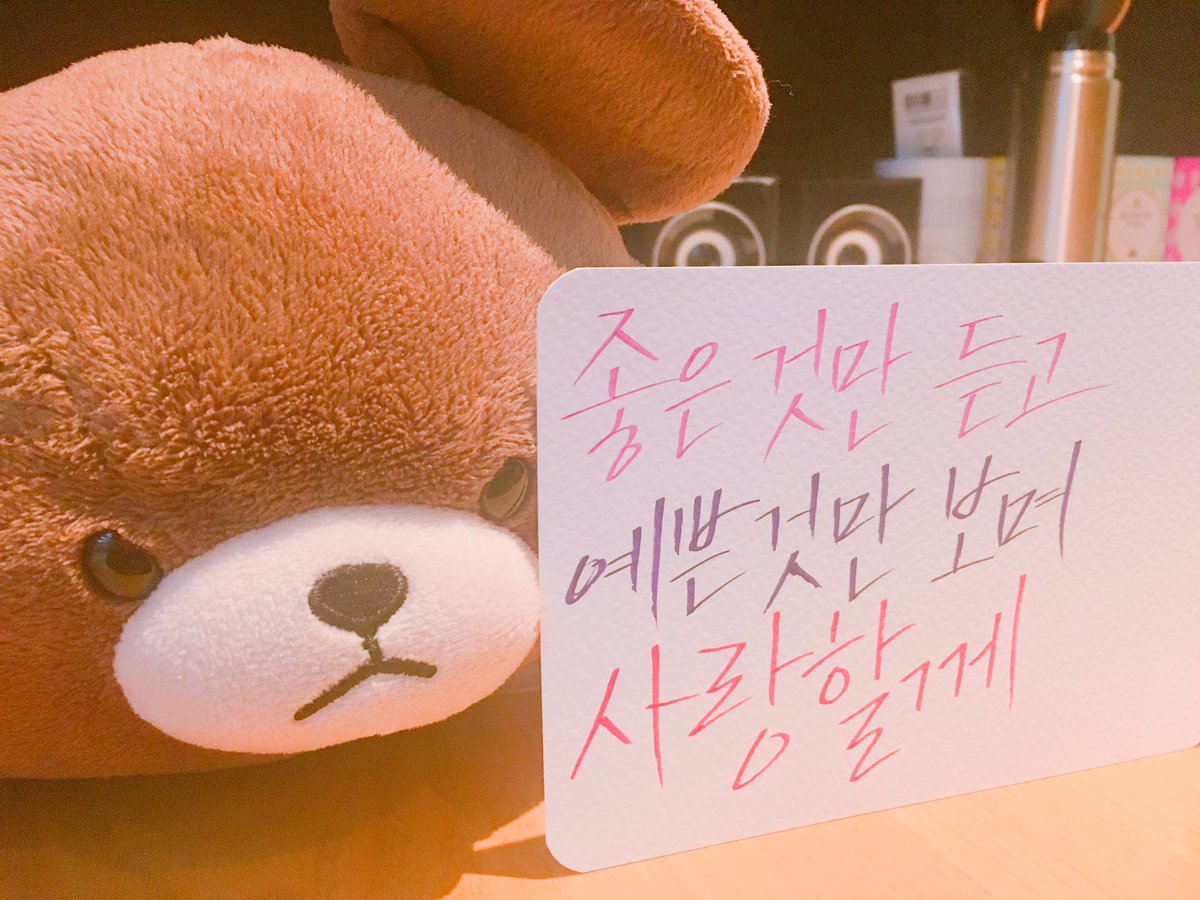 좋은 것만 듣고
예쁜것만 보며
사랑할께